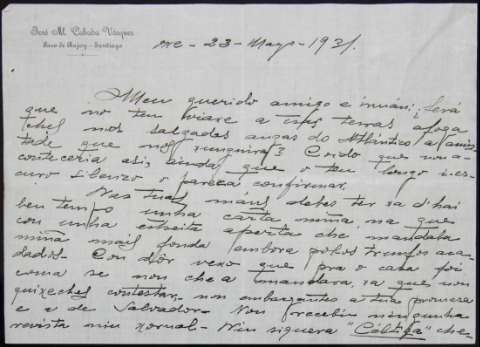 José M. Cabada Vázquez
Puro de Anjoy - Santiago
23 - Mayo - 931.
Meu querido amigo e irmán: ¿Será
que no teu viaxe a esas terras afoga
tedes nos salgadas auguas do Atlántico a amis
tade que nos xunguira? Coido que non a-
contecería asi, ainda que o teu longo i es-
curo silenzo o pareza confirmar.
Nas tuas máns debes ter xa d'hai
ben tempo unha carta miña, na que
con unha estreita aperta che mandaba
miña mais fonda embora polos trunfos aca-
dados. Con dór vexo que pra o caso foi
coma se non che a mandara, xa que non
quixeches contestar, non embargantes a tua promesa
e a de Salvador. Non recebin ningunha
revista nin xornal. Nin siquera "Céltiga" che-